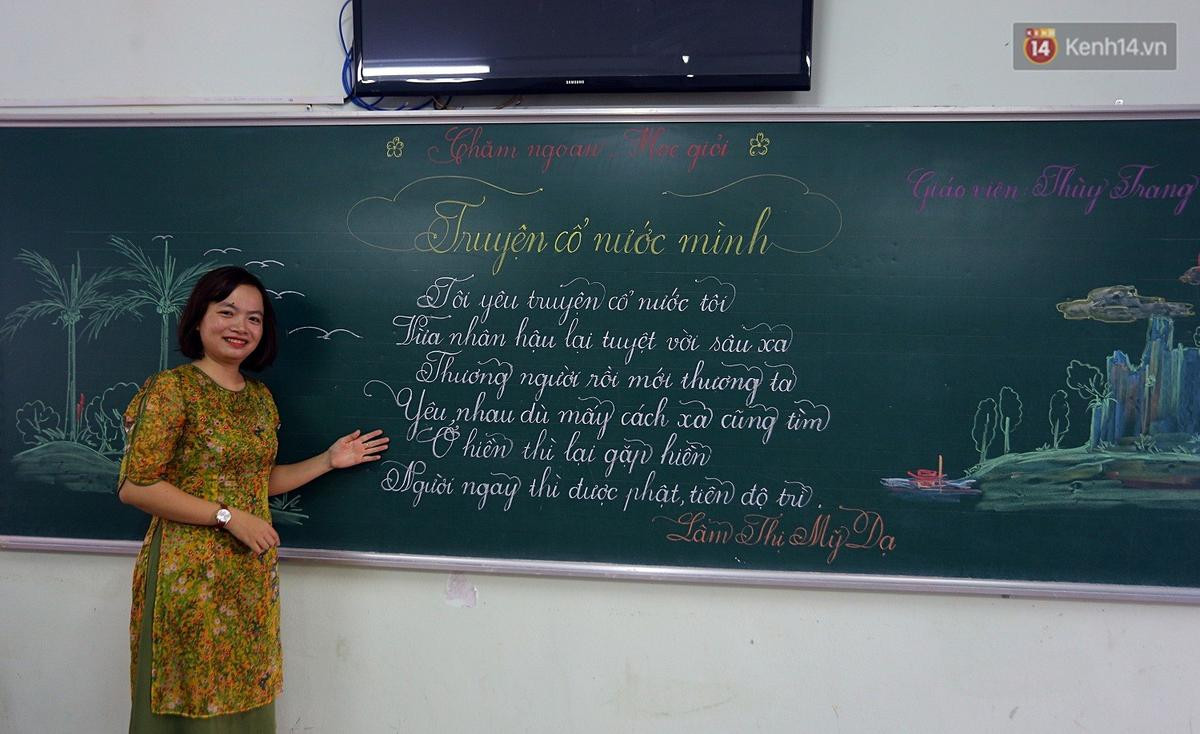 KENH 14 Kenh14.vn
SAMSUNG
Chăm ngoan - Học giỏi
Giáo viên: Thùy Trang
Truyện cổ nước mình
Tôi yêu truyện cổ nước tôi
Vừa nhân hậu lại tuyệt vời sâu xa
Thương người rồi mới thương ta
Yêu nhau dù mấy cách xa cũng tìm
Ở hiền thì lại gặp hiền
Người ngay thì được phật, tiên độ trì.
Lâm Thị Mỹ Dạ